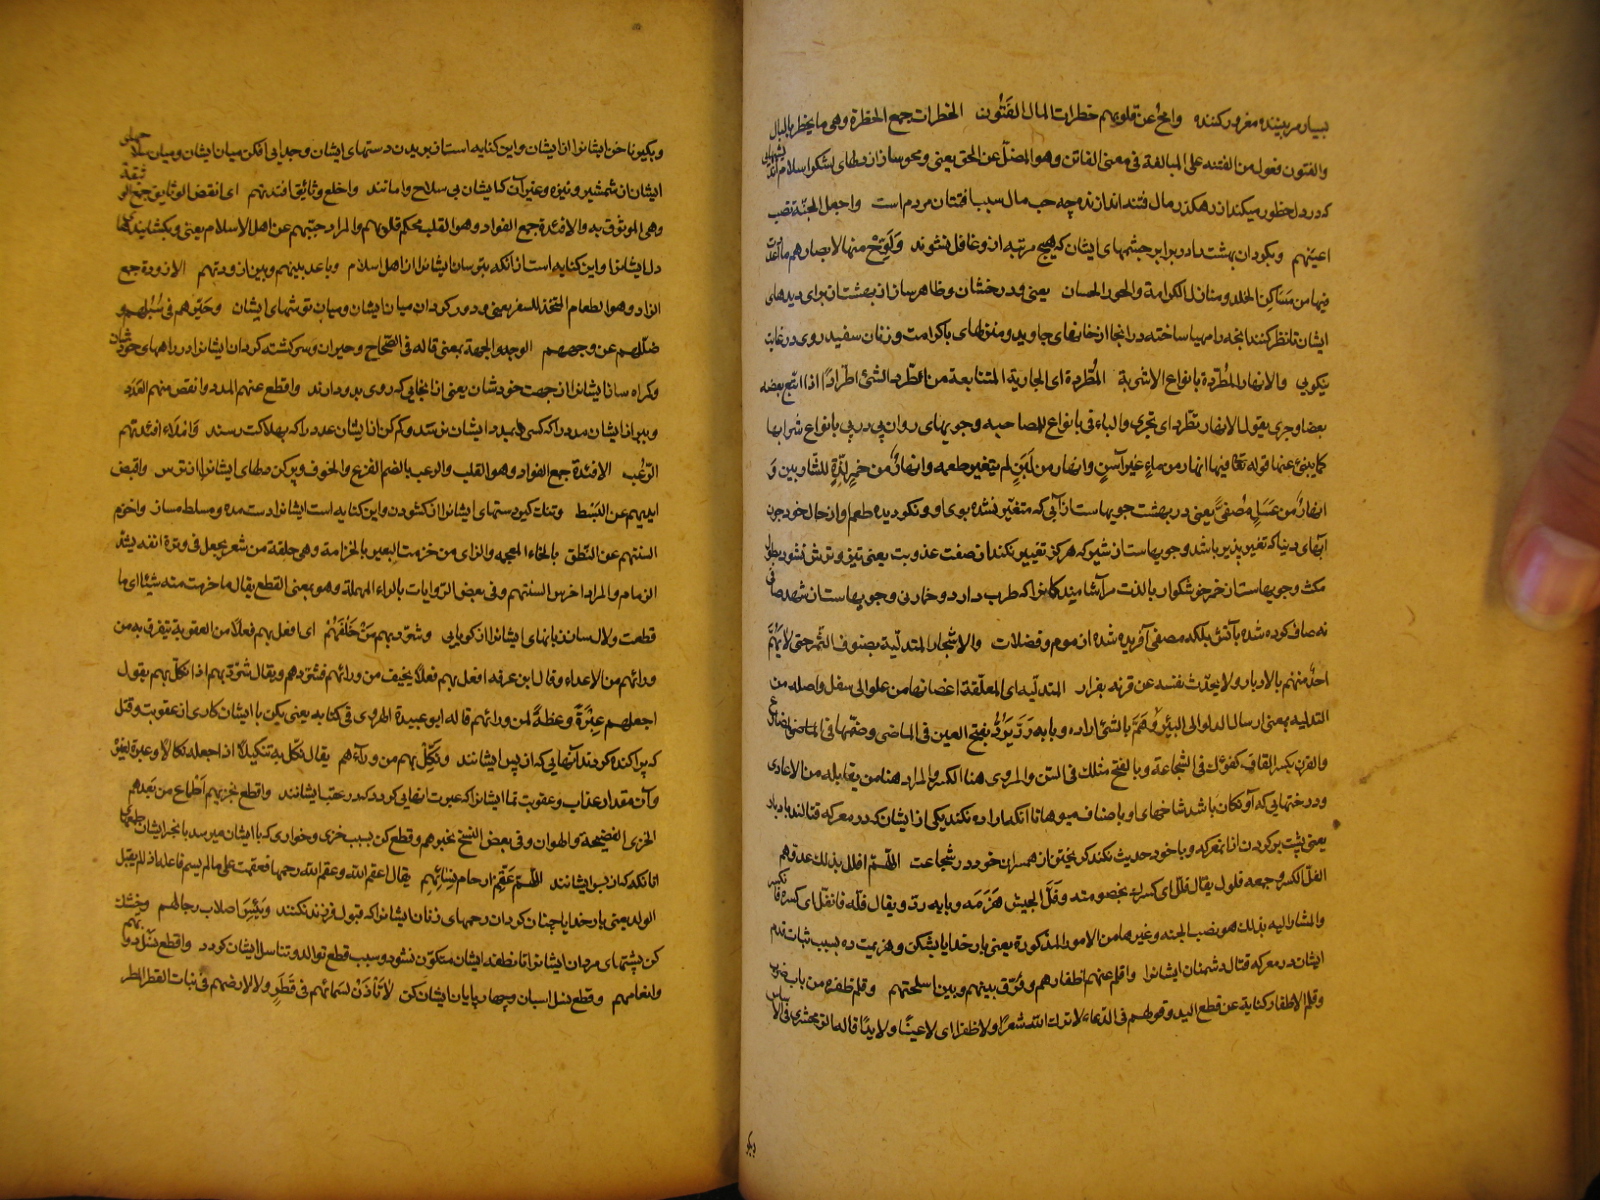 بسیار فریبنده مغرور کننده وامح عن قلوبهم خطرات المال الفَتُون الخطرات جمع الخطرة وهی ما یخطر بالبال
والفتون فعول من الفتنه علی المبالغة فی معنی الفاتن وهو المضلّ عن الحق یعنی و محو ساز از دلهای لشکر اسلام
که در دل خطور میکند از رهکذر مال فتنه اندازنده چه حب مال سبب افتتان مردم است واجعل الجنّة نصب
اعینهم و بکردان بهشت را در برابر چشمهای ایشان که هیچ مرتبه از و غافل نشوند وَلَوّحْ منها لابصارهم ما اعددت
فیها من مَسَاکِن الخلد ومنازل الکرامة والحور الحسان یعنی و درخشان و ظاهر ساز از بهشت برای دیدهای
ایشان تا نظر کنند انچه را مهیا ساخته در انجا از خانهای جاوید و منزلهای با کرامت و زنان سفید روی در غایت
نیکویی والانهار المُطَّردة بانواع الاشربة المُطّردة ای الجاریة المتتابعة من اطّرد الشیٔ اطّراداً اذا اتبع بعضه
بعضا وجری یقول الانهار تطّرد ای تجری والباء فی بانواع للمصاحبه و جویهای روان پی در پی بانواع شرابها
کما ینبیٔ عنها قوله تعا فیها انهار من ماءٍ غیر آسنٍ وانهار من لَبَنٍ لم یتغیر طعمه وانهارٌ من خمرٍ لذّةٍ للشاربین وَ
انهارٌ من عَسَلٍ مصفیً یعنی در بهشت جویهاست از آبی که متغیّر نشده بوی او و نکردیده طعم او از حال خود چون
آبهای دنیا که تغیر پذیر باشد و جویهاست از شیر که هرکز تغییر نکند از صفت عذوبت یعنی تیز و ترش نشود بطول
مکث و جویهاست از خمر خوشکوار بالذت مر آشامیدکانرا که طرب دارد و خمار نی و جویهاست از شهد صافی
نه صاف کرده شده بآتش بلکه مصفّی آفریده شده از موم و فضلات والاشجار المتدلّیة بصنوف الثمر حتی لا یَهُمَّ
احدٌ منهم بالادبار ولا یحدّث نفسه عن قرنه بفرار المتدلیه ای المعلّقة اغصانها من علو الی سفل واصله من
التدلیه بمعنی ارسال الدلو الی البئر وهَمَّ بالشیٔ اراده وبابه رَدَّ یَرُدُّ بفتح العین فی الماضی وضمّها فی المضارع
والقرن بکسر القاف کفؤک فی الشجاعة وبالفتح مثلک فی السن والمروی هنا الکسر والمراد هنا من یقابله من الاعادی
و درختهایی که آونکان باشد شاخهای او باصناف میوها تا انکه اراده نکند یکی از ایشان که در معرکه قتالند بادبار
یعنی پشت بر کردن از معرکه و با خود حدیث نکند کریختن از همسران خود در شجاعت اللّهمّ افلل بذلک عدوّهم
الفلّ الکسر وجمعه فلول یقال فلّ ای کسر بخصومته وفَلّ الجیش هَزَمَه وبابه ردّ ویقال فلّه فانفلّ ای کسره فانکسر
والمشار الیه بذلک هو نصب الجنه وغیرها من الامور المذکورة یعنی بار خدایا بشکن و هزیمت ده بسبب ثبات قدم
ایشان در معرکه قتال دشمنان ایشانرا واقلم عنهم اظفارهم وفرّق بینهم وبین اسلحتهم وقلم ظفره من باب ضرب
وقلم الاظفار کنایة عن قطع الید وقولهم فی الدعاء لا ترک الله شعرا ولا ظفرا ای لا عینًا ولا یدًا قاله الزمخشری فی الاساس
وبکیر
وبکیر ناخن ایشانرا از ایشان و این کنایه است از بریدن دستهای ایشان و جدایی افکن میان ایشان و میان سلاحهای
ایشان از شمشیر و نیزه و غیر آن تا ایشان بی سلاح وا مانند واخلع وثائق افئدتهم ای انقض الوثایق جمع الوثیقة
وهی الموثوق به والافئدة جمع الفواد وهو القلب محکم قلوبهم والمراد جبنهم عن اهل الاسلام یعنی و بکشایند بندهای
دل ایشانرا و این کنایه است از آنکه بترسان ایشانرا از اهل اسلام وباعد بینهم وبین ازودتهم الازودة جمع
الزاد وهو الطعام المتّخذ للسفر یعنی و دور کردان میان ایشان و میان توشهای ایشان وحَیّرهم فی سُبُلهم و
ضلّلهم عن وجههم الوجه والجهة بمعنی قاله فی الصّحاح و حیران و سرکشته کردان ایشانرا در راههای خودشان
و کمراه ساز ایشانرا از جهت خودشان یعنی از انجایی که روی بدو دارند واقطع عنهم المدد وانقص منهم العَدَدَ
و ببر از ایشان مدد را که کسی بمدد ایشان نرسد و کم کن از ایشان عدد را که بهلاکت رسند وَامْلَاْء افئدتهم
الرّعُب الافئدة جمع الفواد وهو القلب والرعب بالضم الفزع والخوف و پر کن دلهای ایشانرا از ترس واقبض
ایدیهم عن البَسْط و تنک کیر دستهای ایشانرا از کشودن و این کنایه است ایشانرا دست مده و مسلط مساز واخزم
السنتهم عن النّطق بالخاء المعجمه والزای من خزمت البعیر بالخزامة وهی حلقة من شعر یجعل فی وترة انفه یشد
الزمام والمراد اخرس السنتهم وفی بعض الروایات بالراء المهملة وهو بمعنی القطع یقال ما خرمت منه شیئا ای ما
قطعت و لال ساز زبانهای ایشانرا از کویایی وشرّد بهم مَنْ خَلْفَهُمْ ای افعل بهم فعلًا من العقوبة یتفرق به من
ورائهم من الاعداء وقال ابن عرفه افعل بهم فعلًا یخیف من ورائهم فشرّدهم ویقال شرّد بهم اذا نکّل بهم یقول
اجعلهم عِبْرَةً وعظةً لمن ورائهم قاله ابو عبیدة الهروی فی کتابه یعنی بکن با ایشان کاری از عقوبت و قتل
که پراکنده کردند آنهایی که از پس ایشانند ونَکّلْ بهم من ورآءهم یقال نکّل به تنکیلًا اذا جعله نکالًا وعبرة لغیره
و آن مقدار عذاب و عقوبت نما ایشانرا که عبرت انهایی کردد که در عقب ایشانند واقطع بخزیهم اَطْماع من بَعدهم
الخزی الفضیحة والهوان وفی بعض النسخ بخبرهم و قطع کن بسبب خزی و خواری که با ایشان میرسد
آنانکه که از پس ایشانند اللّهمّ عَقِّمْ ارحام نِسَائِهِم یقال اعقم الله وعقم الله رحمها فعقمت علی ما لم یسم فاعله اذا لم یقبل
الولد یعنی بار خدایا چنان کردان رحمهای زنان ایشانرا که قبول فرزند نکنند ویَبِّسْ اصلاب رجالهم وخشک
کن پشتهای مردان ایشانرا تا نطفه ایشان متکوّن نشود و سبب قطع توالد و تناسل ایشان کردد واقطع نسل دوابهم
وانعامهم و قطع نسل اسبان و چهار پایان ایشان کن لاتَأذَنْ لِسَمائهم فی قَطَرٍ ولا لارضهم فی نبات القطر المطر